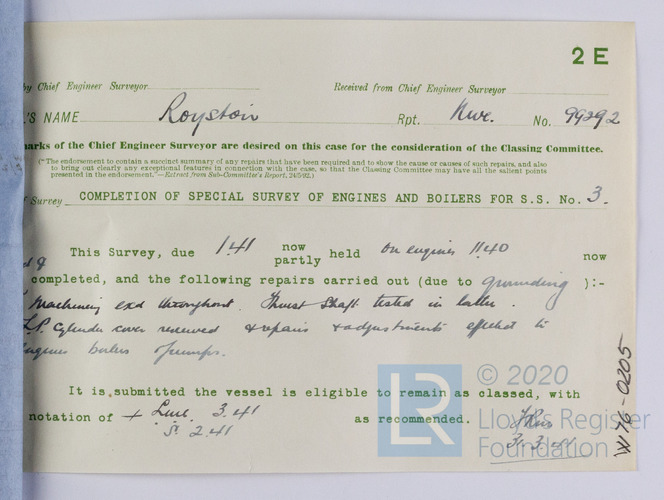 2 E
by Chief Engineer Surveyor
Received from Chief Engineer Surveyor
L'S NAME Royston Rpt. Nwc. No. 99292
marks of the Chief Engineer Surveyor are desired on this case for the consideration of the Classing Committee.
(*The endorsement to contain a succinct summary of any repairs that have been required and to show the cause or causes of such repairs, and also
to bring out clearly any exceptional features in connection with the case, so that the Classing Committee may have all the salient points
presented in the endorsement."—Extract from Sub-Committee's Report, 24/5/92.)
of Survey COMPLETION OF SPECIAL SURVEY OF ENGINES AND BOILERS FOR S.S. No. 3.
This Survey, due 1.41 now partly held on engines 11.40 now
completed, and the following repairs carried out (due to grounding ):-
Machinery exd throughout. Thrust shaft tested in lathe.
L.P. Cylinder cover renewed & repairs & adjustments effected to
engines boilers & pumps.
It is submitted the vessel is eligible to remain as classed, with
notation of + LMC 3.41 as recommended.
2.41
3.3.41
W176-0205
© 2020
LR
Lloyd's Register
Foundation